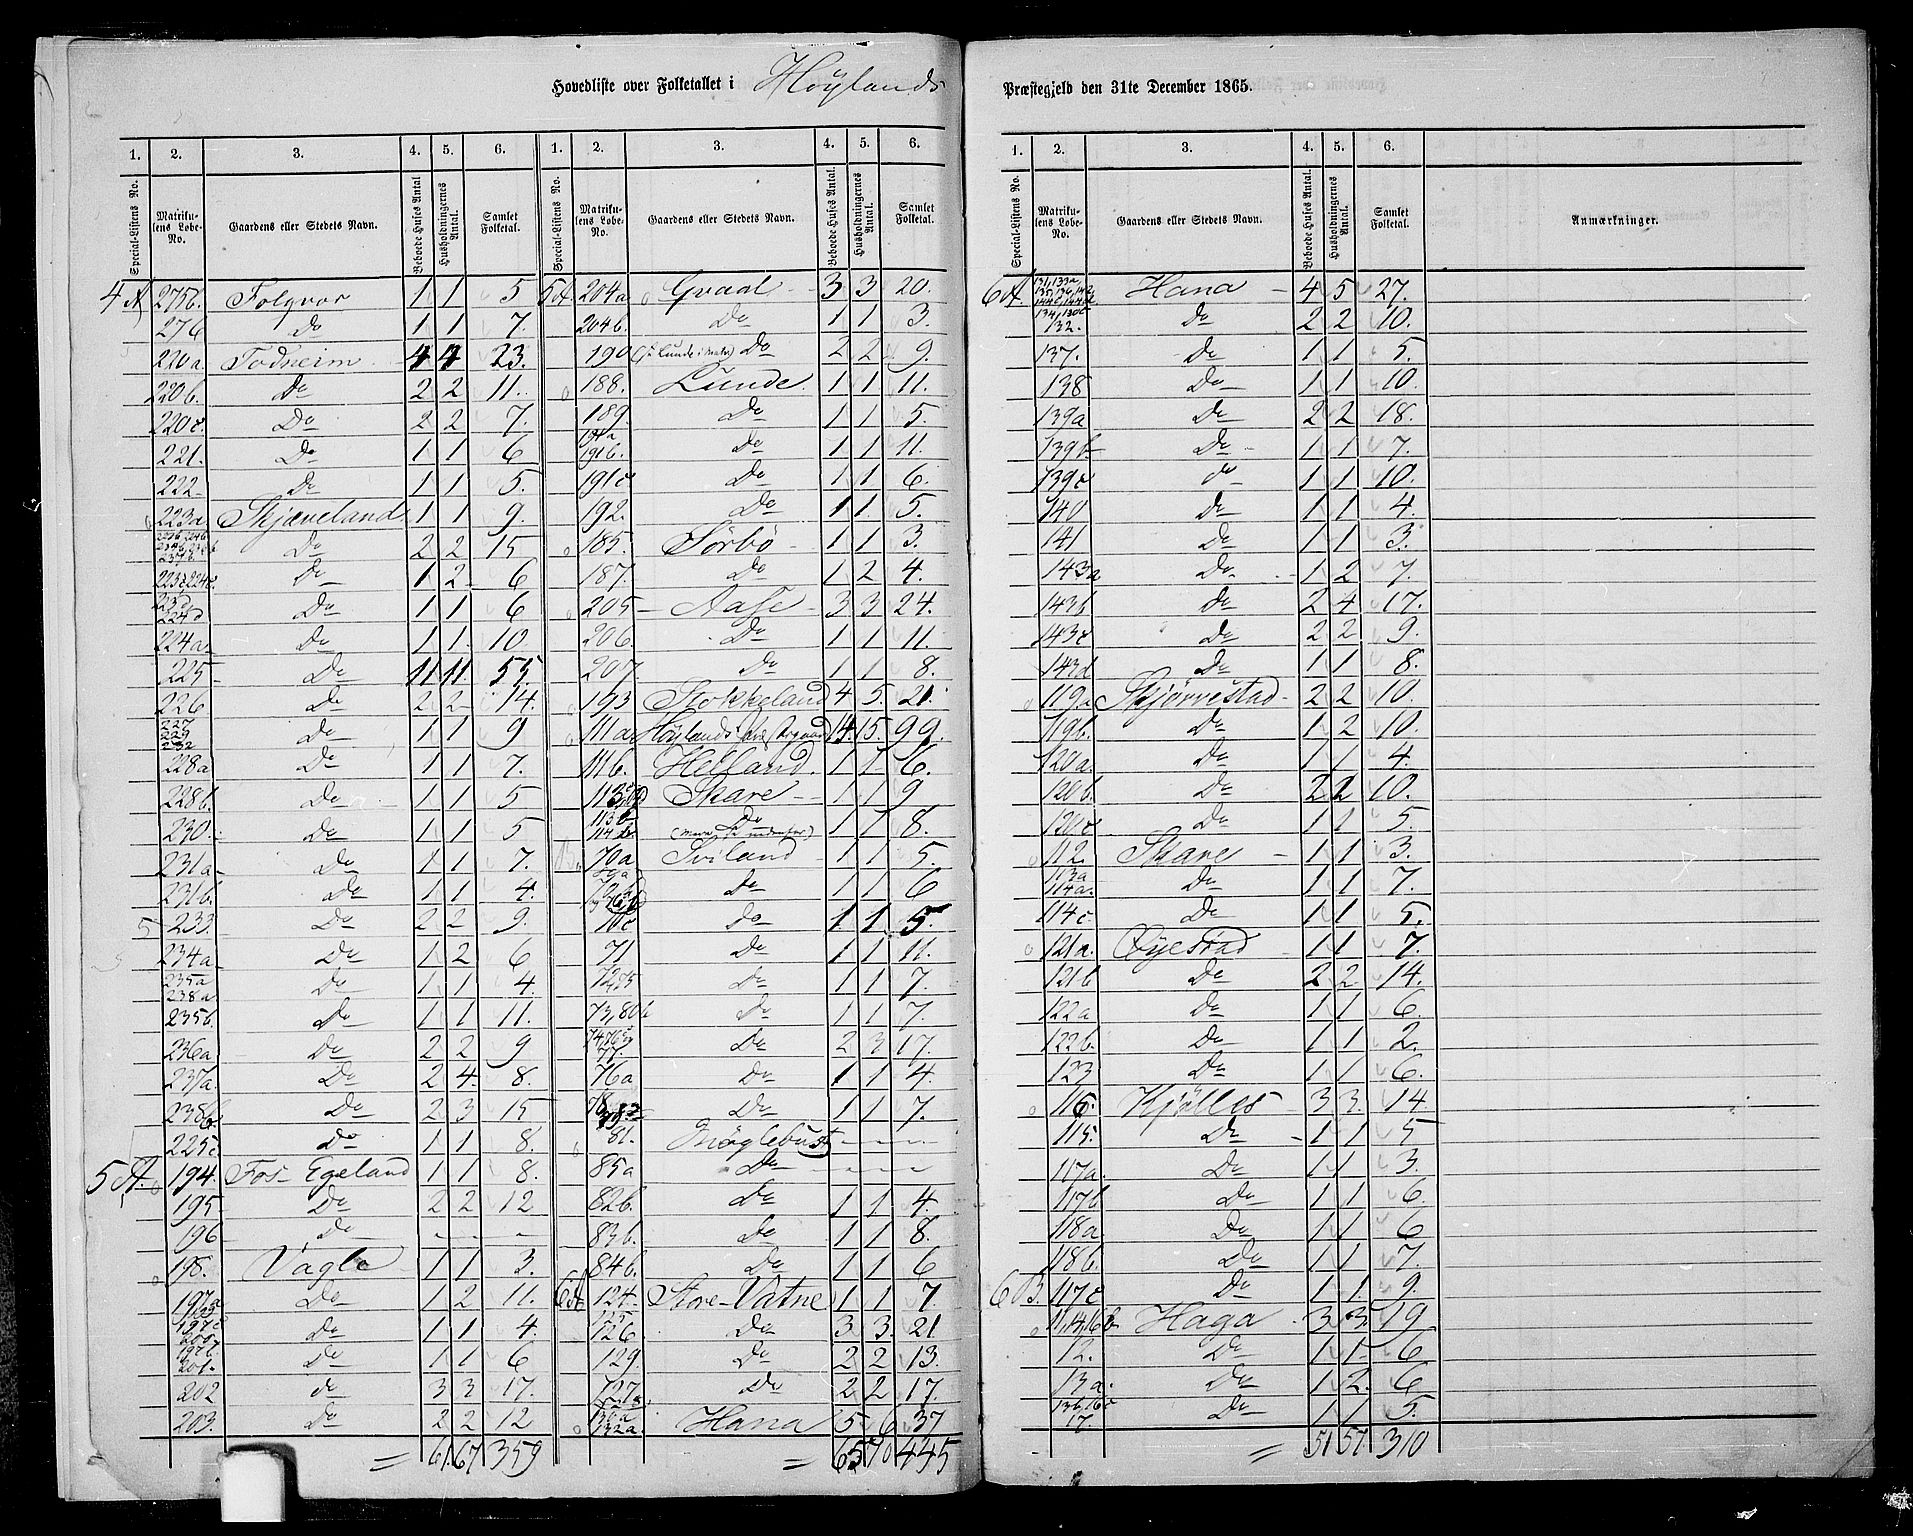 Hovedliste over Folketallet i Höylands Præstegjeld den 31te December 1865.
1. 2. 3. 4. 5. 6. 1. 2. 3. 4. 5. 6.
Special-Listens No. Matrikulens Løbe-No. Gaardens eller Stedets Navn. Beboede Huses Antal. Husholdningernes Antal. Samlet Folketal. Special-Listens No. Matrikulens Løbe-No. Gaardens eller Stedets Navn. Beboede Huses Antal. Husholdningernes Antal. Samlet Folketal.
4 A 275b. Folgvor 1 1 5
276 Do 1 1 7.
220a Todneim 4 4 23.
220b. Do 2 2 11.
220c. Do 2 2 7.
221. Do 1 1 6
222 Do 1 1 5.
223a Skjæveland 1 1 9.
Do 2 2 15
223c 224c. Do 1 2 6
223d 224d Do 1 1 6
224a Do 1 1 10
225 Do 11 11. 55.
226 Do 2 2 14.
227 229 232 Do 1 1 9
228a Do 1 1 7.
228b. Do 1 1 5
230. Do 1 1 5
231a Do 1 1 7.
231b. Do 1 1 4.
233. Do 2 2 9.
234a Do 1 2 6
235a 238a Do 1 1 4
235b. Do 1 1 11.
236a Do 2 2 9
237a. Do 2 4. 8.
238b. Do 2 3 15
225c Do 1 1 8.
5 A. 194. Fos-Egeland 1 1 8.
195 Do 2 2 12
196 Do - - -
198. Vagle 1 1 3.
197a Do 1 2 11.
197c 200. Do 1 1 4.
197b. 201. Do 1 1 6
202 do 3 3 17.
203. Do 2 2 12
= 61. 67 359
5 A 204a Gvaal 3 3 20.
204b. Do 1 1 3.
190 Do 2 2 9.
188. Lunde. 1 1 11.
189. Do 1 1 5
191a 191b. Do 1 1 11.
191c Do 1 1 6.
192. Do 1 1. 5.
185. Sørbö 1 1 3.
187. Do 1 2 4.
205 Aase 3 3 24.
206. Do 1 1 11.
207. Do 1 1 8.
193 Stokkeland 4 5. 21.
111a Höylands Præstegaard 14. 15. 99.
111b. Helland. 1 1 6.
Skare 1 1 9
Do 1 1 8.
70a Sviland 1 1 5.
Do 1 1 6
70c do 1 1 5
71 Do 1 1 11.
72, 75 do 1 1 7.
73, 80b do 1 1 7.
77. Do 2 3 17.
76a Do 1 1 4.
Do 1 1 7.
81. Bröglebust - - -
85a Do - - -
82b. Do 1 1 4.
83b. Do 1 1 8.
84b. Do 1 1 6
6 A 124. Store-Vatne 1 1 7.
125 126 Do 3 3. 21
129. Do 2 2 13.
127a. Do 2 2 17.
130a 132a. Hana 5 6 37
= 65 70 445
1. 2. 3. 4. 5. 6.
Special-Listens No. Matrikulens Løbe-No. Gaardens eller Stedets Navn. Beboede Huses Antal. Husholdningernes Antal. Samlet Folketal. Anmærkninger.
6 A. Hana 4 5 27.
132. Do 2 2 10.
137. Do 1 1 5.
138 Do 1 1 10.
139a Do 2 2 18.
139b Do 1 1 7.
139c do 1 1 10.
140 Do 1 1 4.
141 Do 1 1 3.
143a Do 1 2 7.
143b Do 2 4 17.
143c Do 2 2 9.
143d Do 1 1 8.
119a Skjörvestad 2 2 10.
119b. Do 1 2 10.
120a. Do 1 1 4.
120b. Do 2 2 10.
120c Do 1 1 5.
112. Skare 1 1 3.
113a 114a. Do 1 1 7.
114c. Do 1 1 5.
121a. Öyestad 1 1 7.
121b Do 2 2 14.
122a Do 1 1 6.
122b. Do 1 1 2.
123 Do 1 1 6.
116. Kjölles 3 3. 14
115. Do 1 1 5
117a. Do 1 1 3.
117b Do 1 1 6.
118a Do 1 1 6
118b. Do 1 1 7.
6 B. 117c Do 1 1. 9.
11, 14, 16b Haga 3 3. 19
12. Do 1 1 6
13a. Do 1 2. 6
13b, 16c 17. Do 1 1 5.
= 51 57. 310